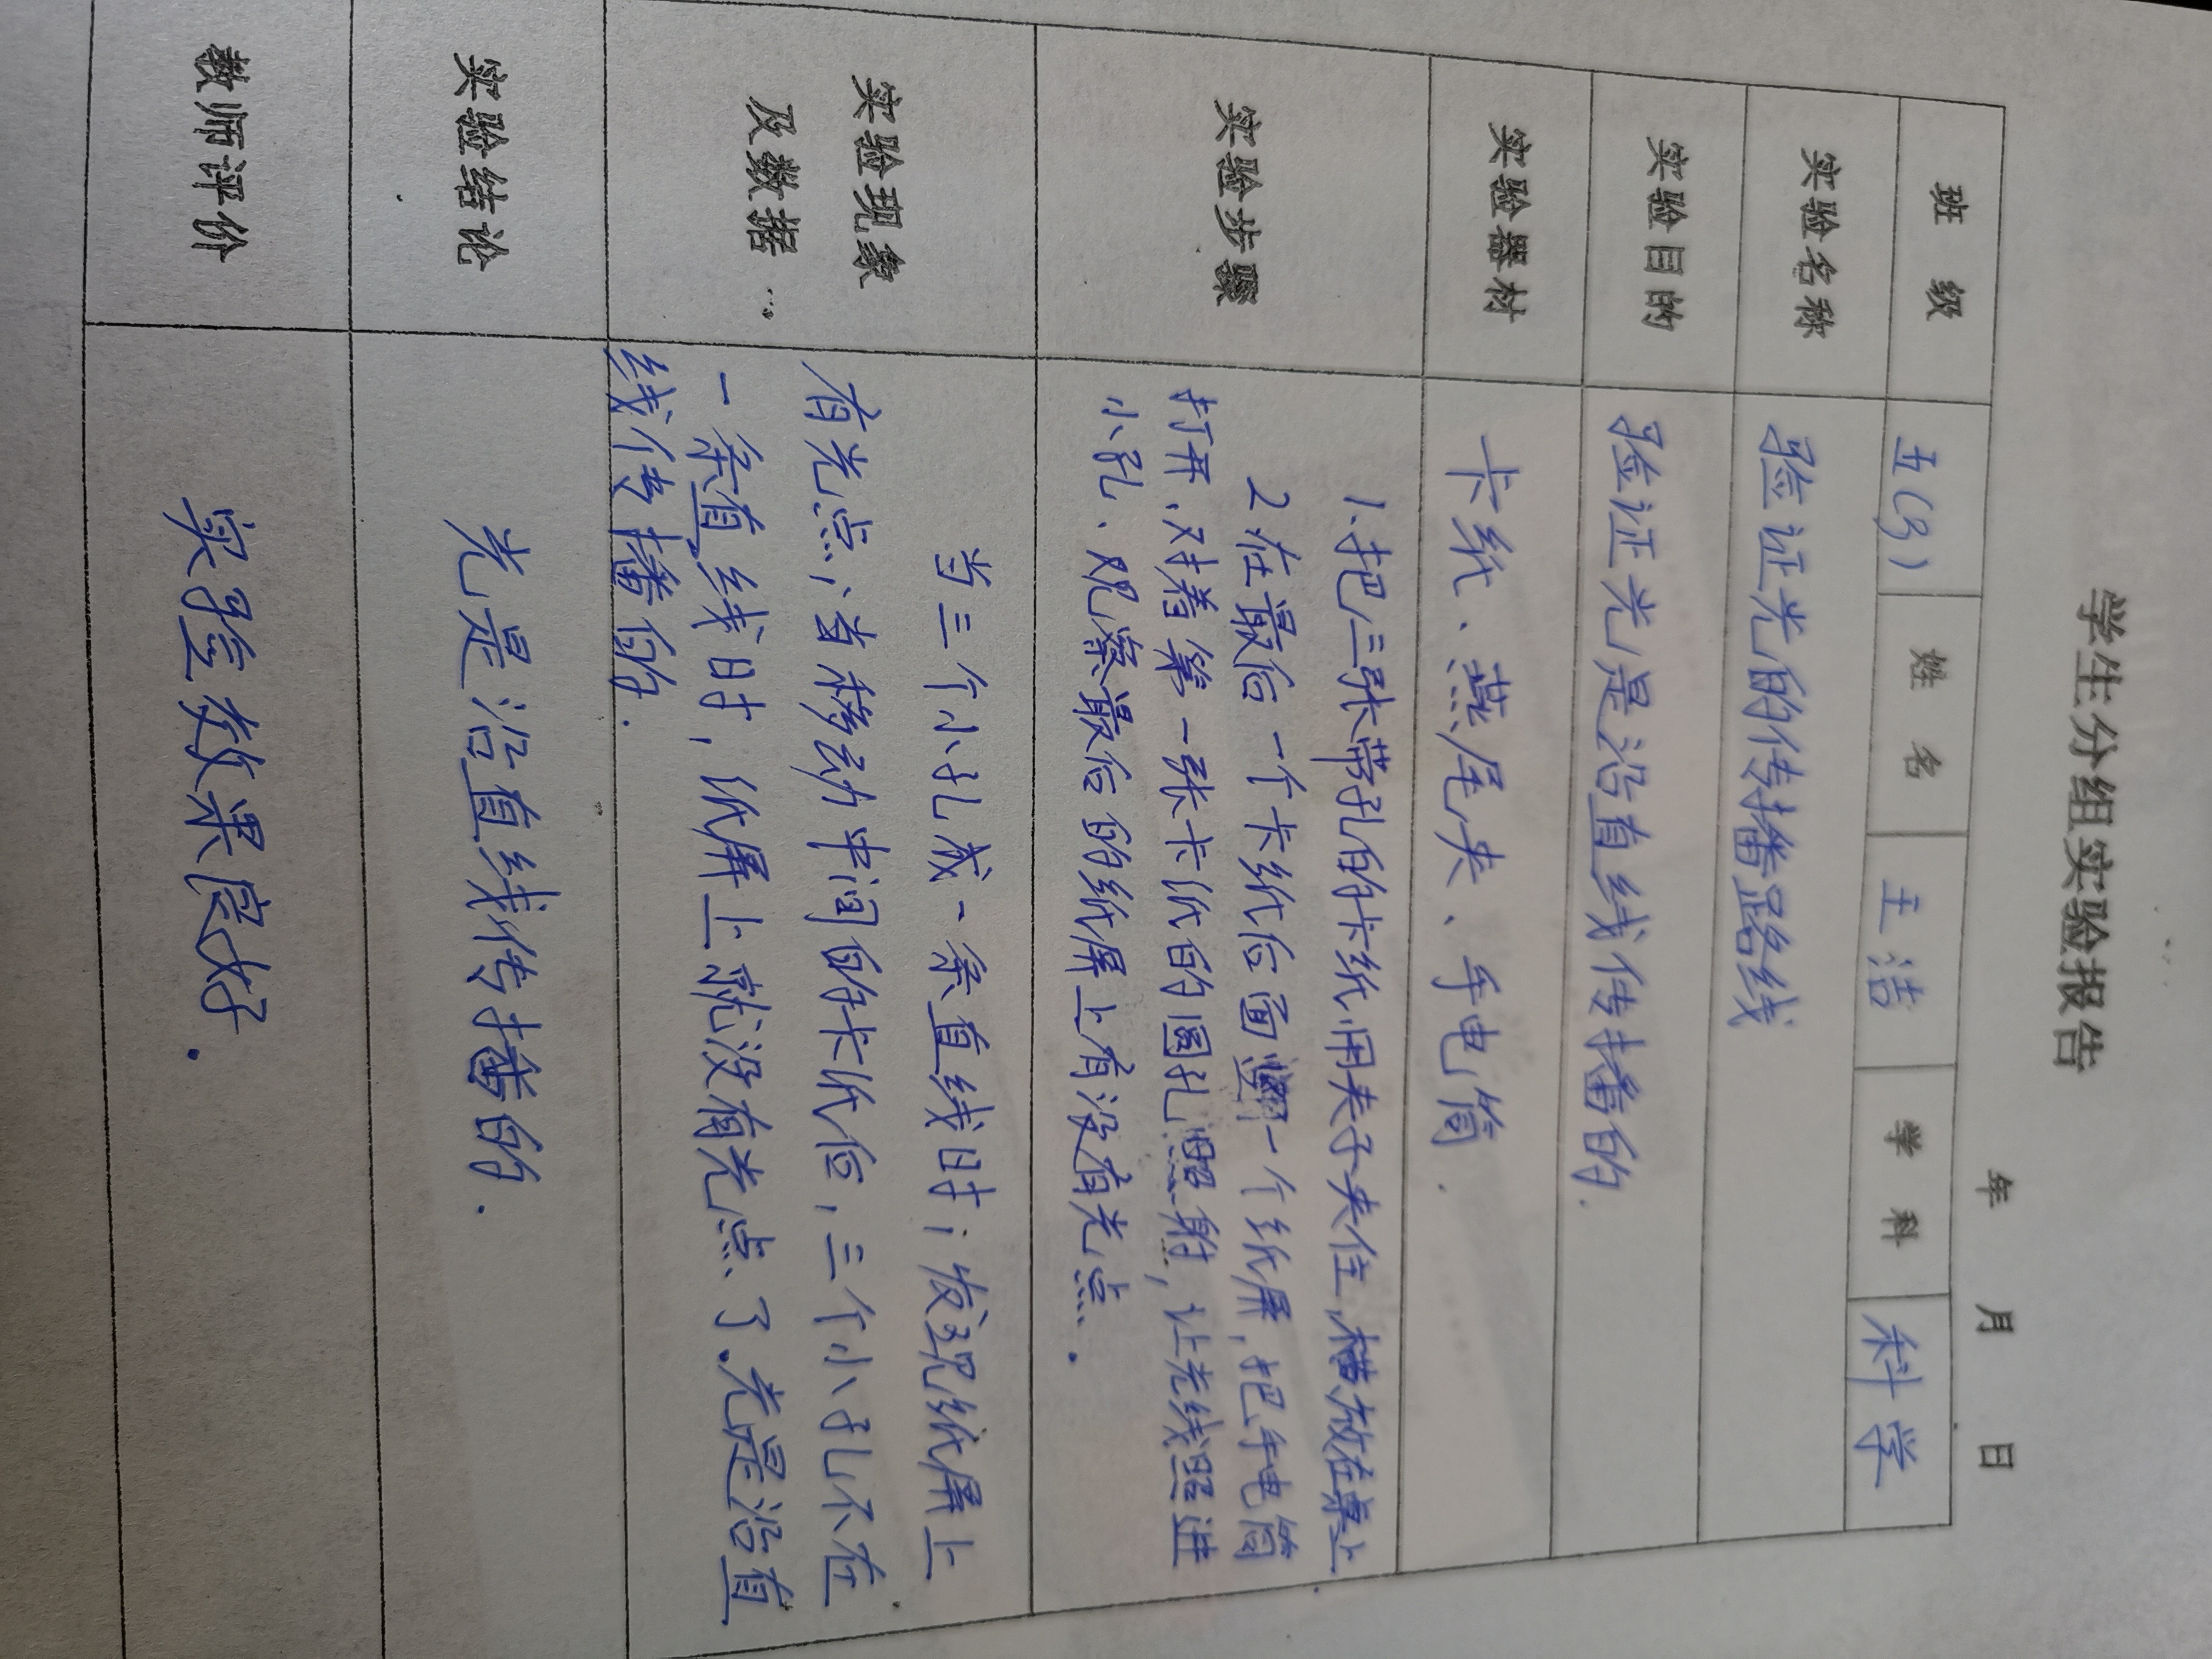 学生分组实验报告
年 月 日
班 级 五(3) 姓 名 王浩 学 科 科学
实验名称 验证光的传播路线
实验目的 验证光是沿直线传播的.
实验器材 卡纸、燕尾夹、手电筒.
实验步骤
1.把三张带孔的卡纸用夹子夹住,横放在桌上
2在最后一个卡纸后面竖一个纸屏,把手电筒
打开,对着第一张卡纸的圆孔照射,让光线照进
小孔、观察最后的纸屏上有没有光点.
实验现象
及数据
当三个小孔成一条直线时;发现纸屏上
有光点;当移动中间的卡纸后,三个小孔不在
一条直线时,纸屏上就没有光点了.光是沿直
线传播的.
实验结论 光是沿直线传播的.
教师评价 实验效果良好.